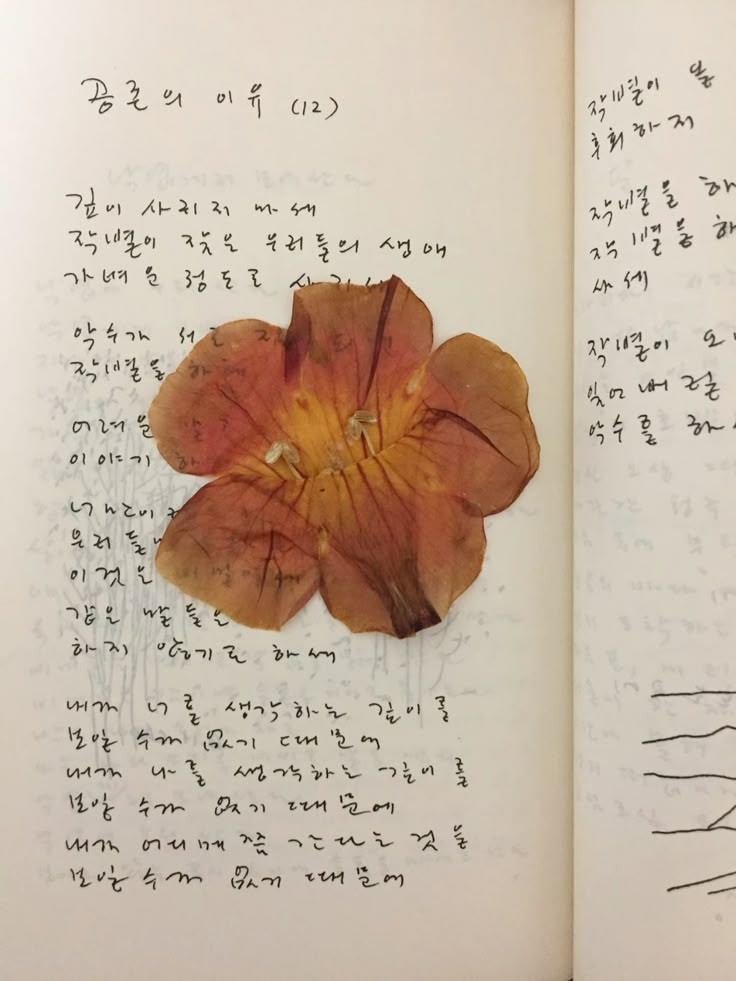 공존의 이유 (12)
깊이 사귀지 마세
작별이 잦은 우리들의 생애
가벼운 정도로 사귀세
악수가 서로
작별을 하세
어려운 말
이야기 하
너만이
우리들
이것은
같은 말들은
하지 않기로 하세
내가 너를 생각하는 깊이를
보일 수가 없기 때문에
내가 나를 생각하는 깊이를
보일 수가 없기 때문에
내가 어디메쯤 간다는 것을
보일 수가 없기 때문에
작별이 올
후회하지
작별을 하
작별을 하
사세
작별이 오
잊어버릴
악수를 하